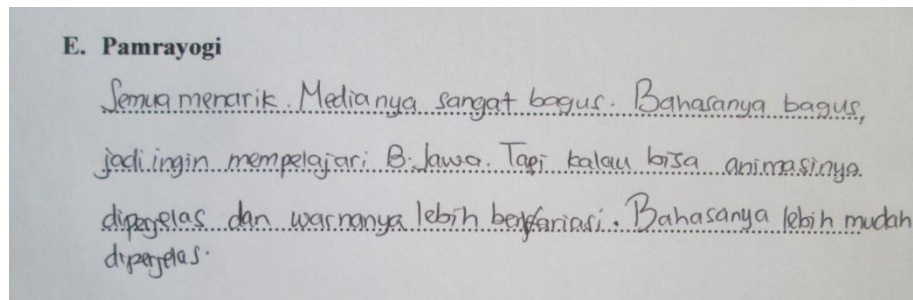 E. Pamrayogi
Semua menarik. Medianya sangat bagus. Bahasanya bagus,
jadi ingin mempelajari B. Jawa. Tapi kalau bisa animasinya
diperjelas dan warnanya lebih berfariasi. Bahasanya lebih mudah
diperjelas.